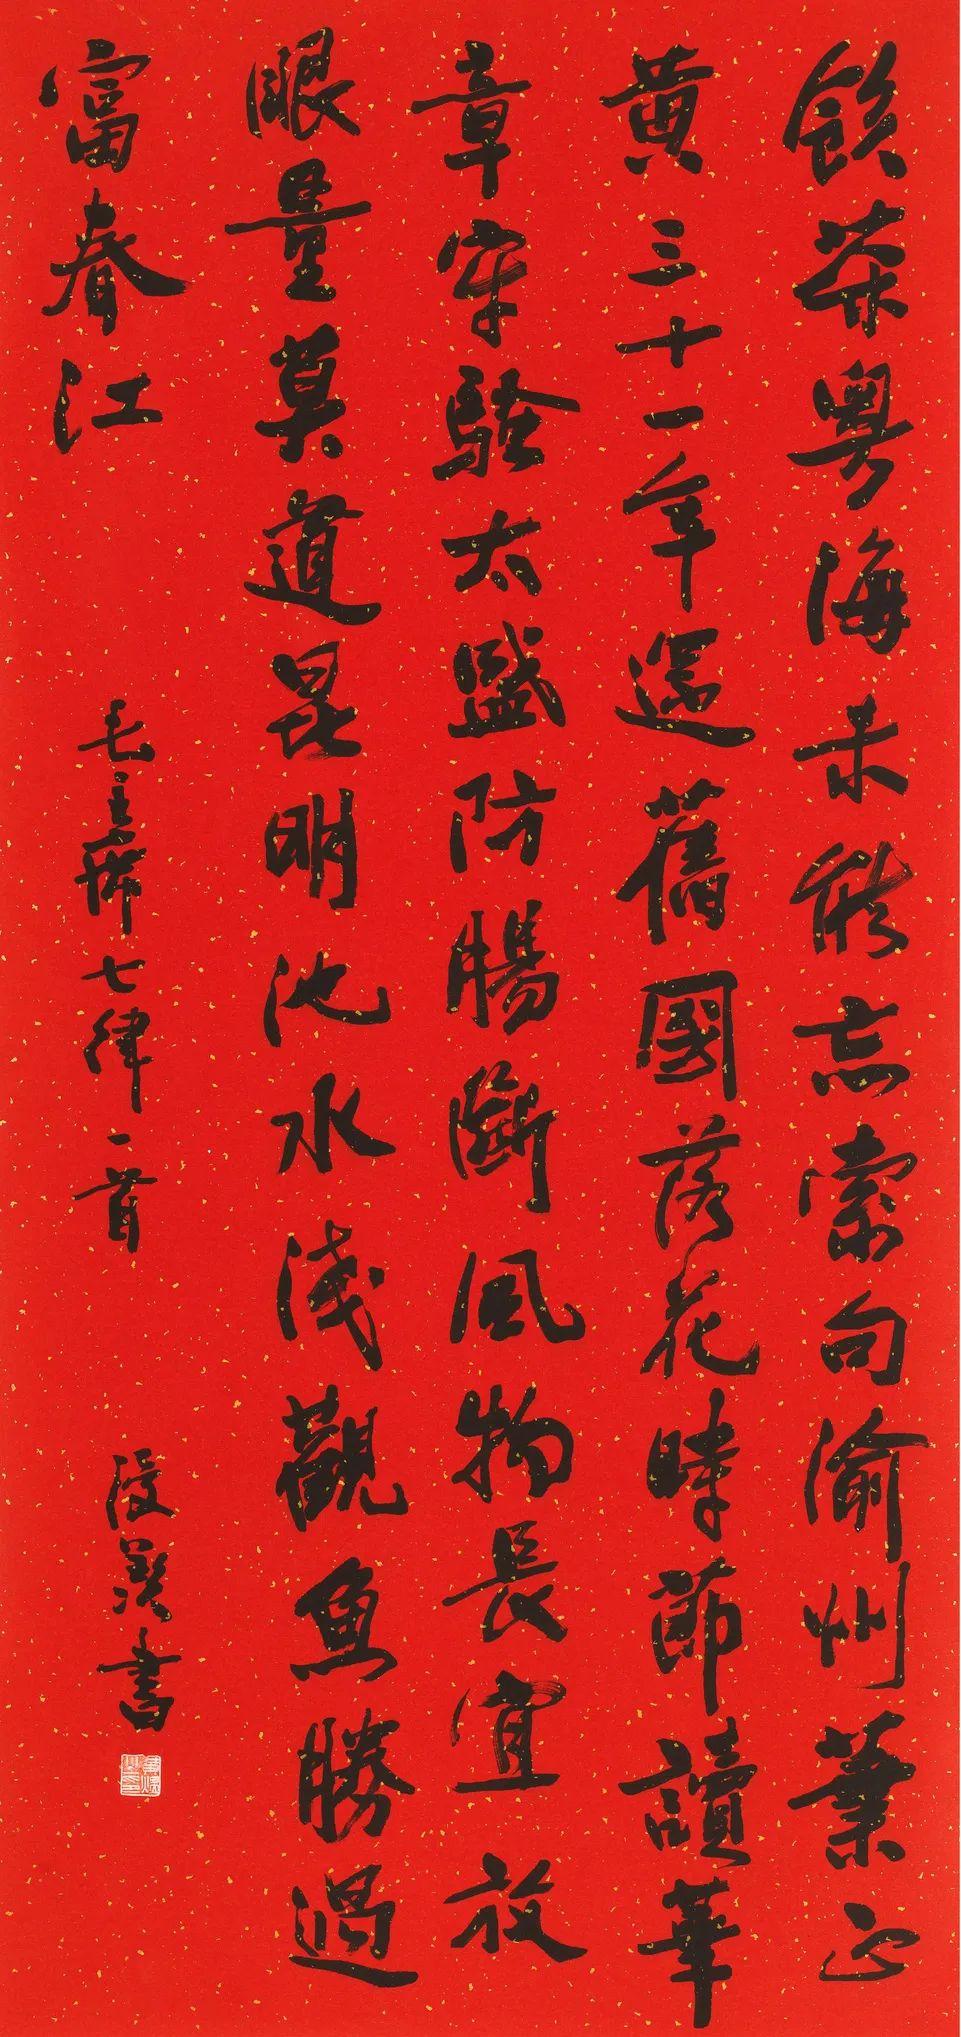 飲茶粤海未能忘索句渝州葉正
黄三十一年還舊國落花時節讀華
章牢騷太盛防腸斷風物長宜放
眼量莫道昆明池水淺觀魚勝過
富春江
毛主席七律一首
書